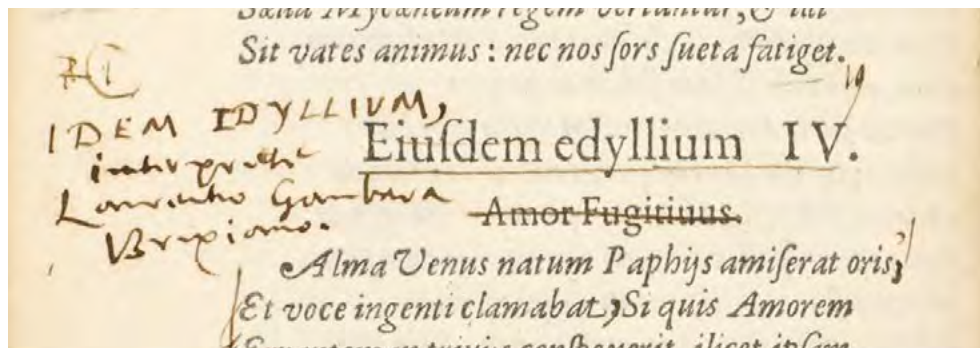 Sæua Mycæneum regem vertantur, & tui
Sit vates animus : nec nos ſors ſueta fatiget.
IDEM IDYLLIUM,
interprete
Laurentio Gambara
Brixiano.
Eiuſdem edyllium IV.
Amor Fugitiuus.
Alma Venus natum Paphijs amiſerat oris,
Et voce ingenti clamabat, Si quis Amorem